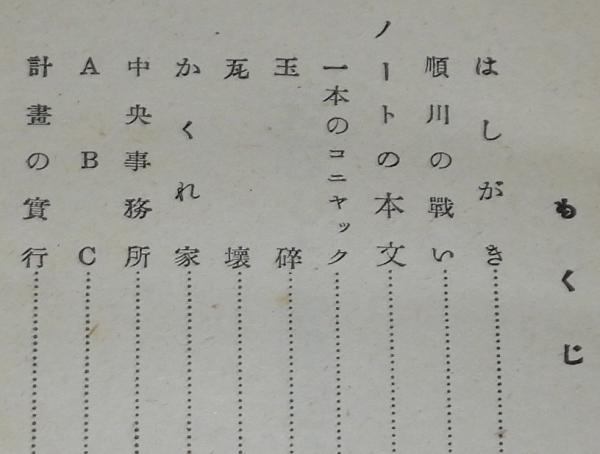 もくじ
はしがき
順川の戰い
ノートの本文
一本のコニヤック
玉碎
瓦壞
かくれ家
中央事務所
ABC
計畫の實行